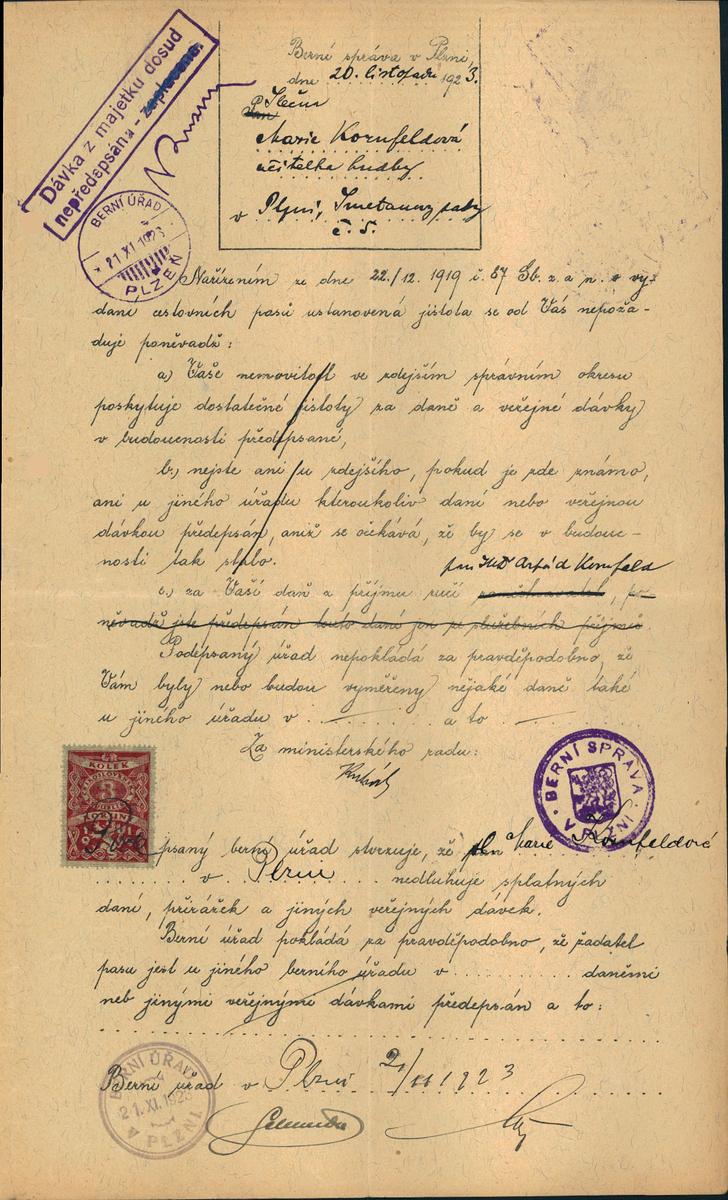 Dávka z majetku dosud
nepředepsána - zaplacena.
BERNÍ ÚŘAD
21 XI 1923
PLZEŇ
Berní správa v Plzni,
dne 20. listopadu 1923.
Slečna
Pan
Marie Kornfeldová
učitelka hudby
v Plzni, Smetanovy sady
č. 5.
Nařízením ze dne 22./12. 1919 č. 87 Sb. z. a n. o vy-
dání cestovních pasů ustanovená jistota se od Vás nepoža-
duje poněvadž:
a) Vaše nemovitost ve zdejším správním okresu
poskytuje dostatečné jistoty za daně a veřejné dávky
v budoucnosti předepsané,
b) nejste ani u zdejšího, pokud je zde známo,
ani u jiného úřadu kteroukoliv daní nebo veřejnou
dávkou předepsán, aniž se očekává, že by se v budouc-
nosti tak stalo.
pan JUDr Arpád Kornfeld
c) za Vaši daň z příjmu ručí zaměstnavatel, po-
něvadž jste předepsán touto daní jen ze služebních příjmů.
Podepsaný úřad nepokládá za pravděpodobno, že
Vám byly nebo budou vyměřeny nějaké daně také
u jiného úřadu v . . . . . a to . . . . .
Za ministerského radu:
BERNÍ SPRÁVA
V PLZNI
KOLEK
psaný berní úřad stvrzuje, že Marie Kornfeldová
v Plzni nedluhuje splatných
daní, přirážek a jiných veřejných dávek.
Berní úřad pokládá za pravděpodobno, že žadatel
pasu jest u jiného berního úřadu v . . . . . daněmi
neb jinými veřejnými dávkami předepsán a to:
Berní úřad v Plzni 21/11 1923
BERNÍ ÚŘAD
21. XI. 1923
V PLZNI